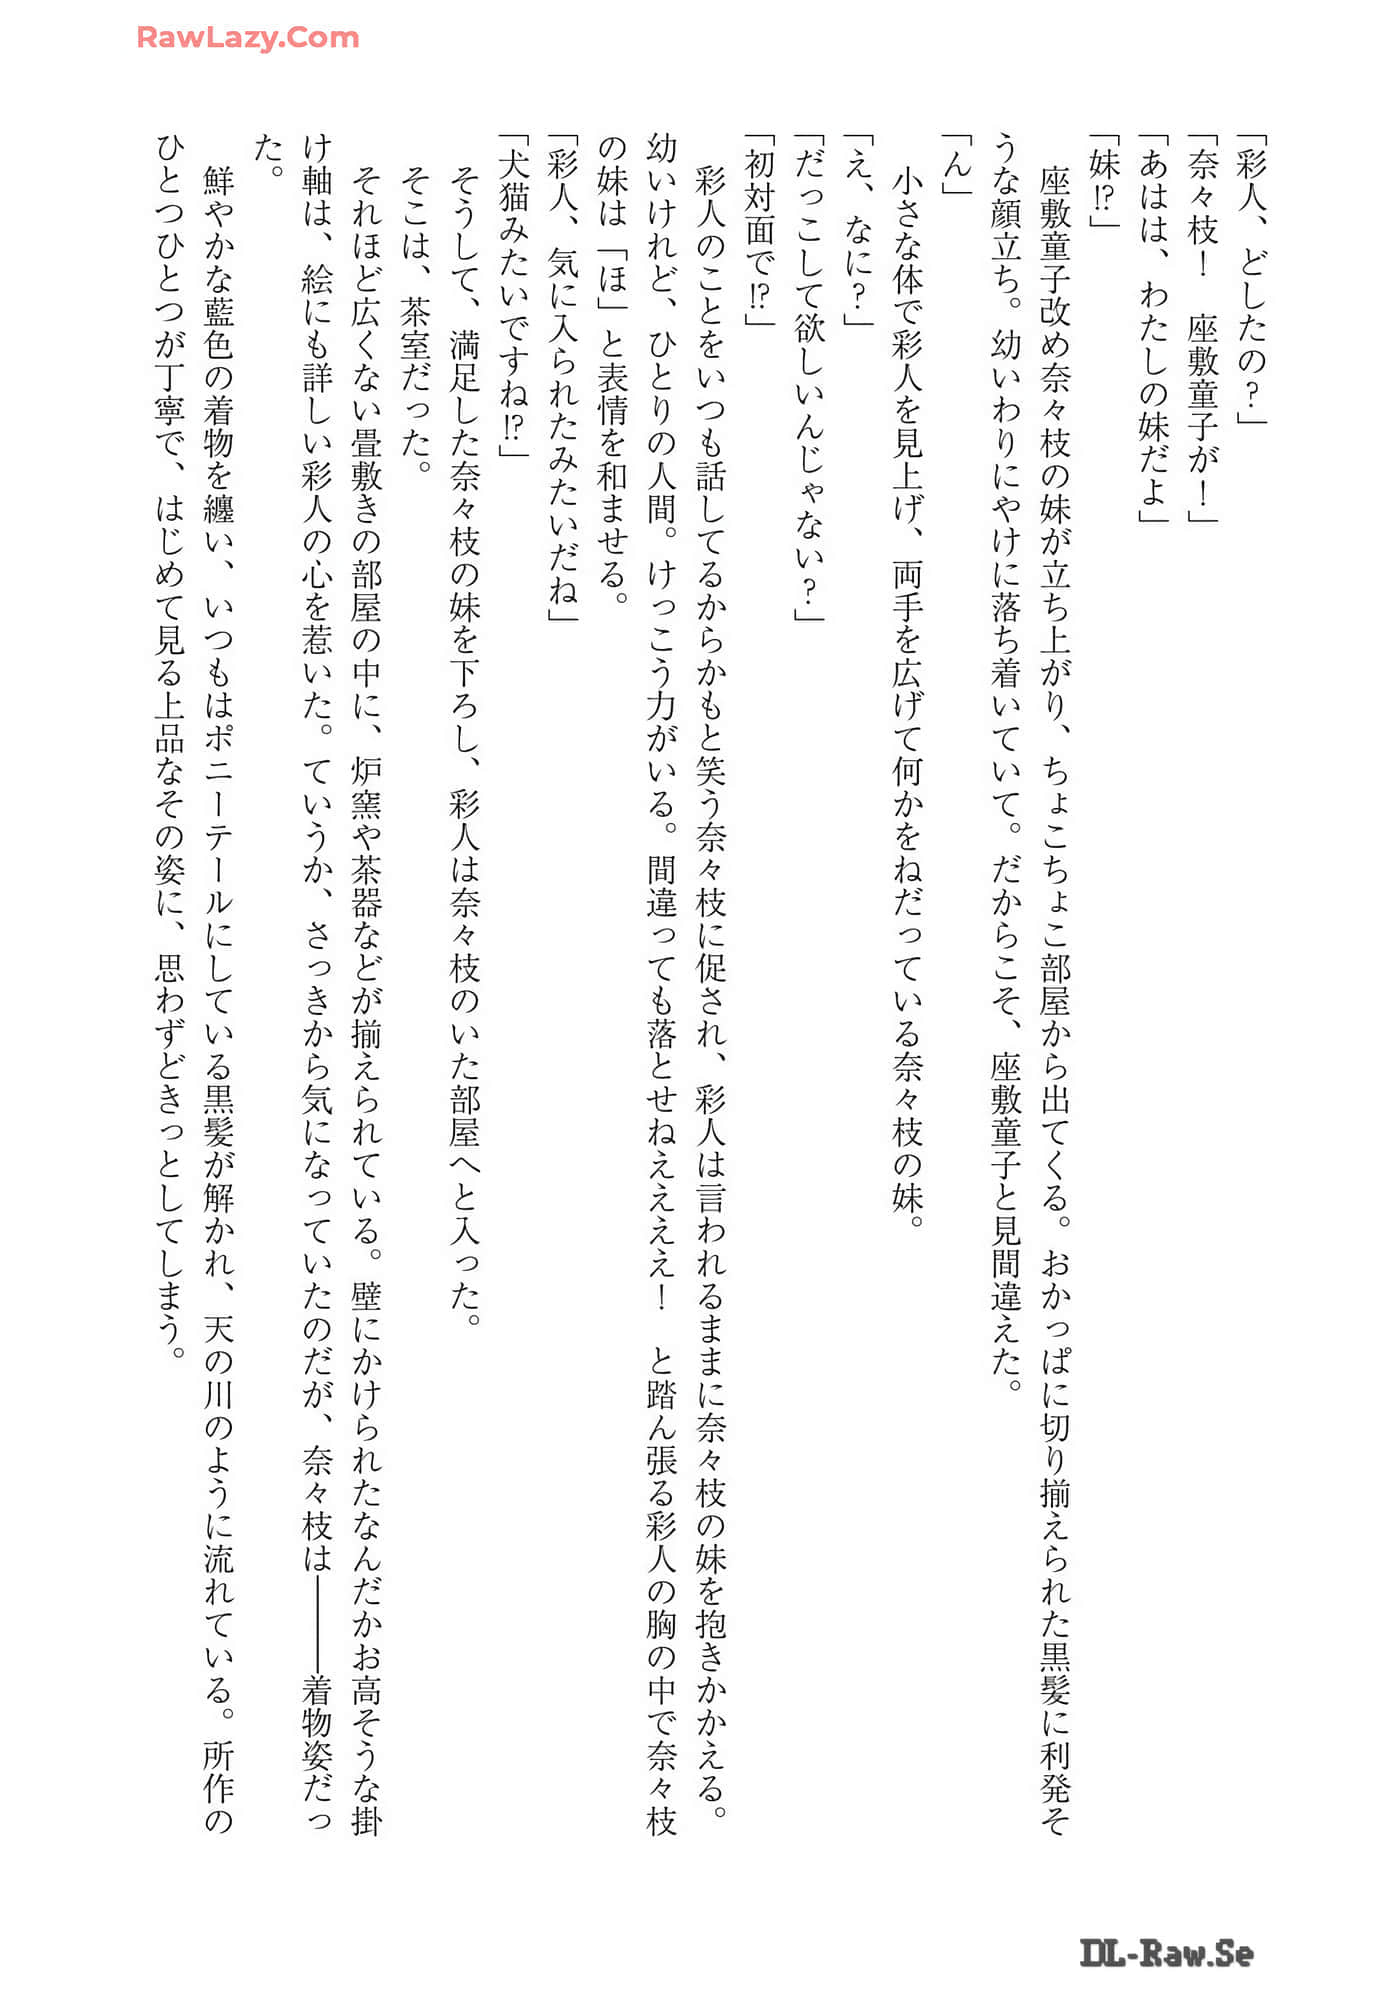 RawLazy.Com
「彩人、どしたの？」
「奈々枝！　座敷童子が！」
「あはは、わたしの妹だよ」
「妹!?」
　座敷童子改め奈々枝の妹が立ち上がり、ちょこちょこ部屋から出てくる。おかっぱに切り揃えられた黒髪に利発そ
うな顔立ち。幼いわりにやけに落ち着いていて。だからこそ、座敷童子と見間違えた。
「ん」
　小さな体で彩人を見上げ、両手を広げて何かをねだっている奈々枝の妹。
「え、なに？」
「だっこして欲しいんじゃない？」
「初対面で!?」
　彩人のことをいつも話してるからかもと笑う奈々枝に促され、彩人は言われるままに奈々枝の妹を抱きかかえる。
幼いけれど、ひとりの人間。けっこう力がいる。間違っても落とせねえええ！　と踏ん張る彩人の胸の中で奈々枝
の妹は「ほ」と表情を和ませる。
「彩人、気に入られたみたいだね」
「犬猫みたいですね!?」
　そうして、満足した奈々枝の妹を下ろし、彩人は奈々枝のいた部屋へと入った。
　そこは、茶室だった。
　それほど広くない畳敷きの部屋の中に、炉窯や茶器などが揃えられている。壁にかけられたなんだかお高そうな掛
け軸は、絵にも詳しい彩人の心を惹いた。ていうか、さっきから気になっていたのだが、奈々枝は———着物姿だっ
た。
　鮮やかな藍色の着物を纏い、いつもはポニーテールにしている黒髪が解かれ、天の川のように流れている。所作の
ひとつひとつが丁寧で、はじめて見る上品なその姿に、思わずどきっとしてしまう。
DL-Raw.Se